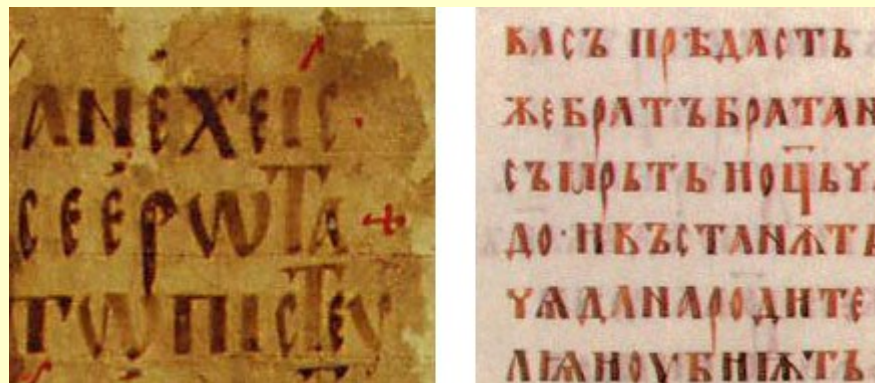 ΑΝΕΧΕΙϹ
ϹΕΕΡΩΤΑ
ΤΩΠΙϹΤΕΥ
ВАСЪ ПРѢДАСТЬ
ЖЕБРАТЪБРАТАН
СЪМРЬТЬ
ДО НВЪСТАНѪТ
ЧѦДАНАРОДИТЕ